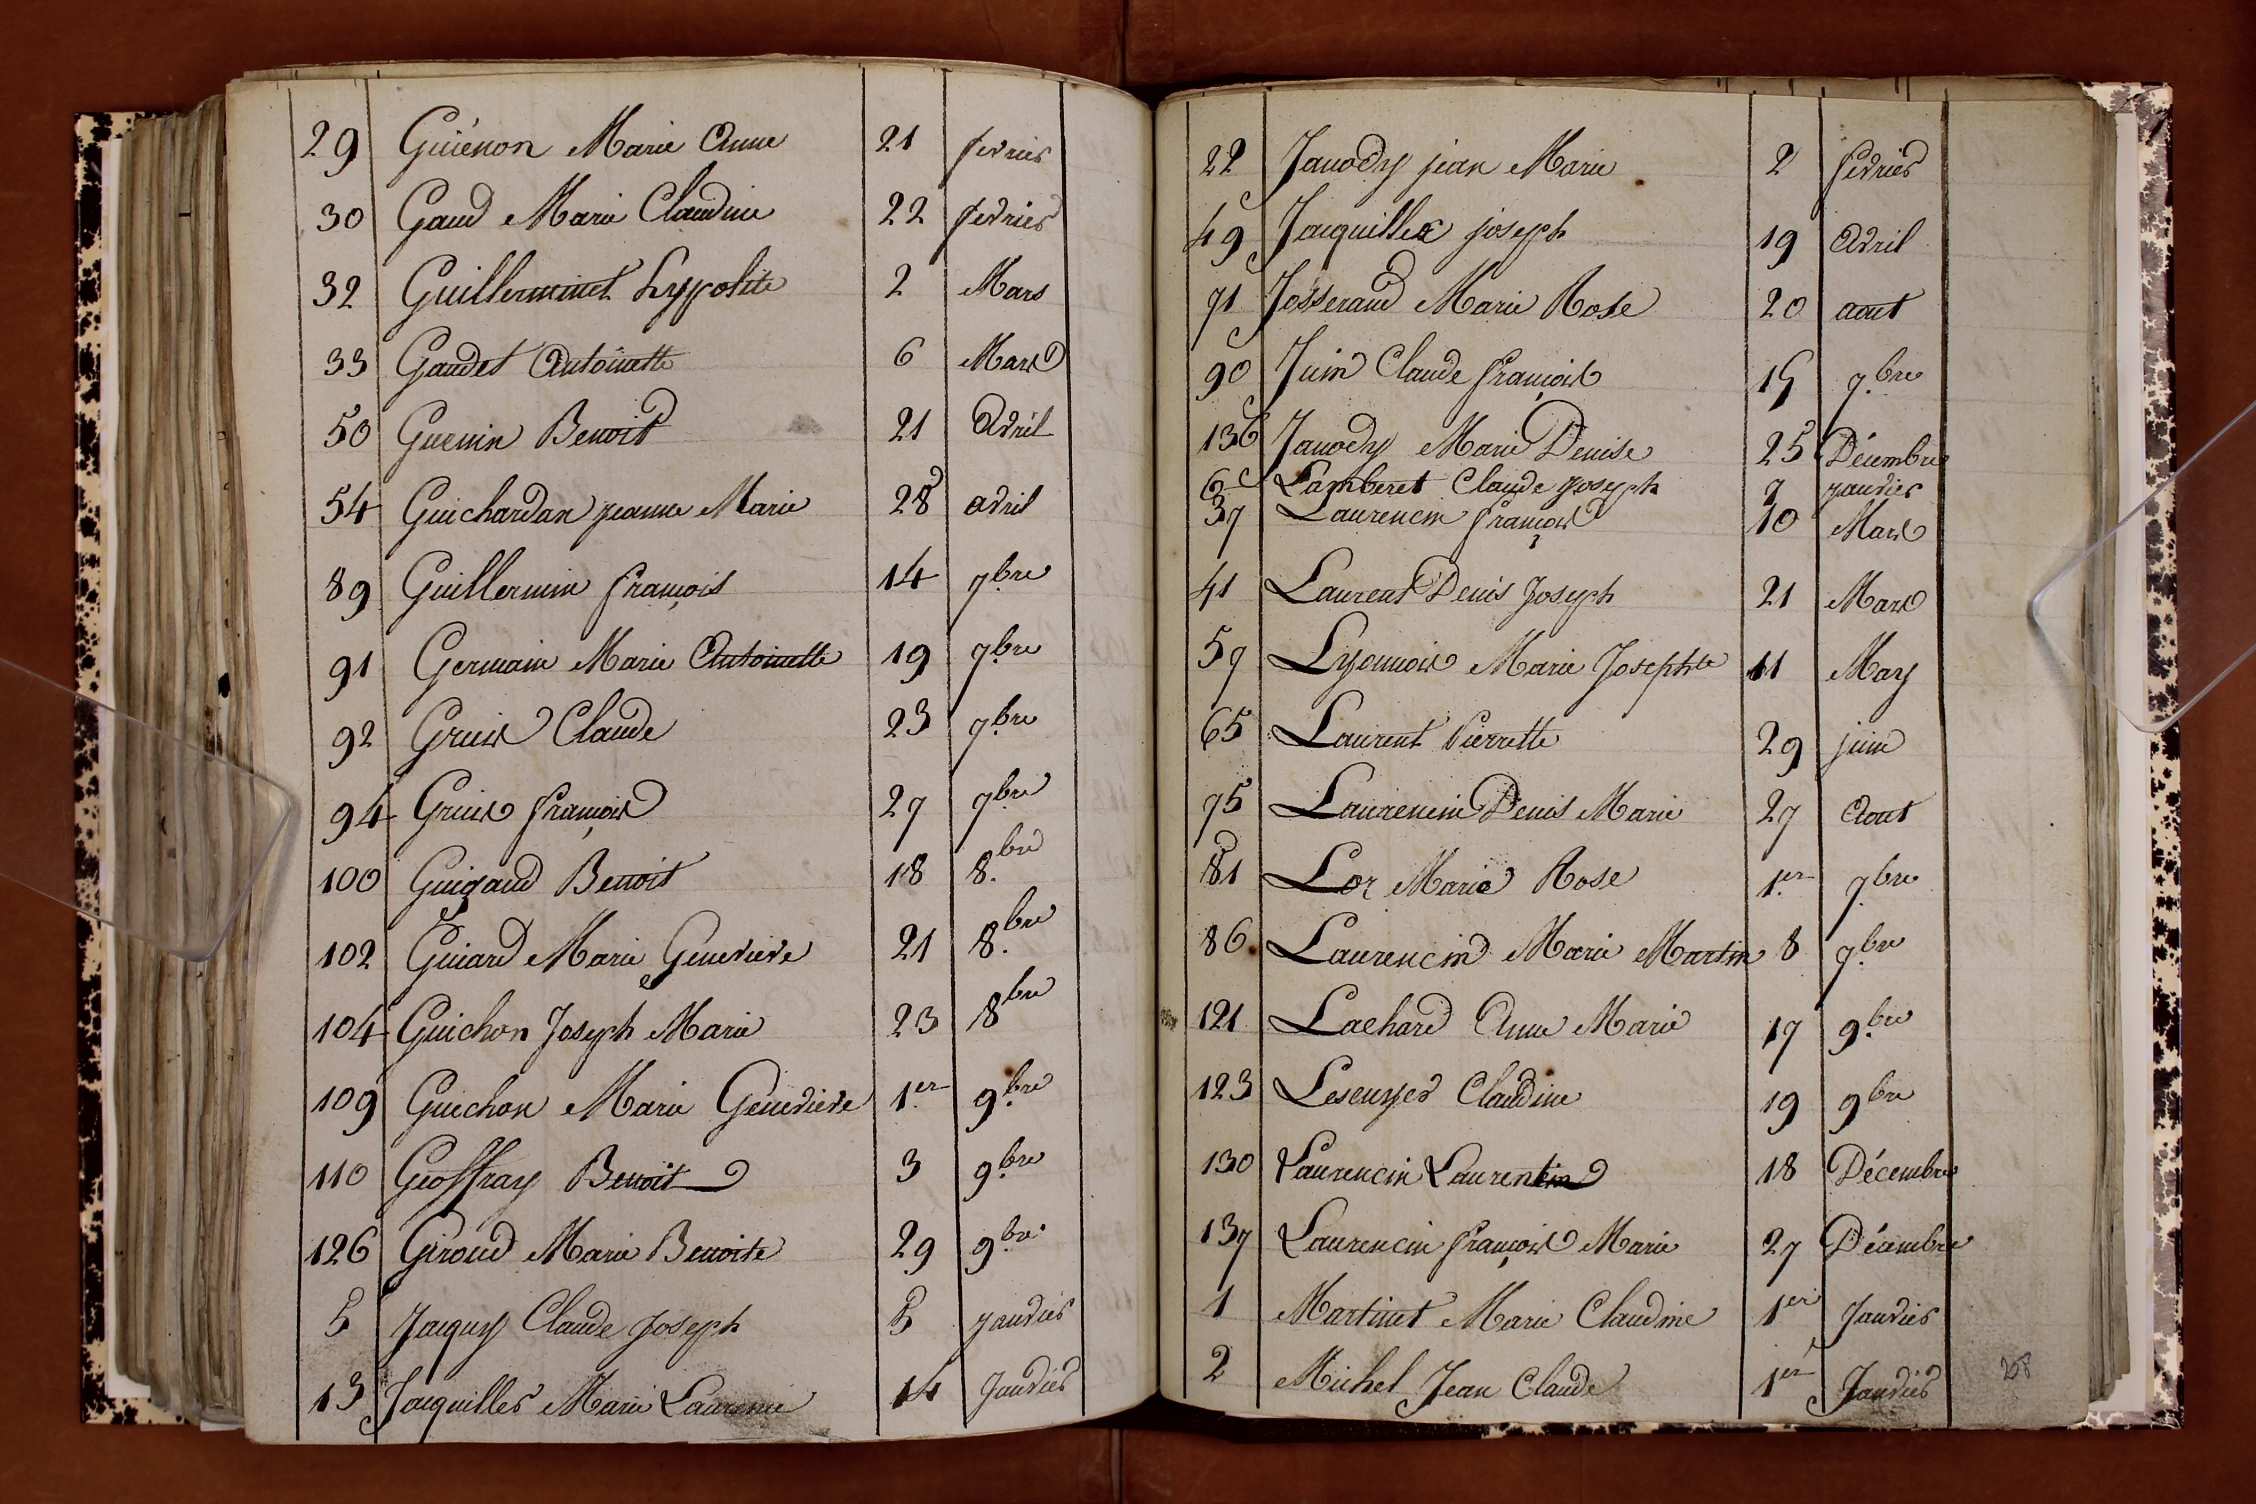 29 Guiénon Marie Anne 21 fevrier
30 Gaud Marie Claudine 22 fevrier
32 Guillerminet hypolite 2 Mars
33 Gaudet Antoinette 6 Mars
50 Guenin Benoit 21 Avril
54 Guichardan jeanne Marie 28 avril
89 Guillermin françois 14 7.bre
91 Germain Marie Antoinette 19 7.bre
92 Gruis Claude 23 7.bre
94 Gruis françois 27 7.bre
100 Guigaud Benoit 18 8.bre
102 Guiard Marie Genevieve 21 8.bre
104 Guichon Joseph Marie 23 8bre
109 Guichon Marie Génevieve 1.er 9.bre
110 Geoffray Benoit 3 9.bre
126 Giroud Marie Benoite 29 9bre
5 Jaquy Claude joseph 5 janvier
13 Jaquiller Marie Laurence 14 Janvier
22 Janody jean Marie 2 fevrier
49 Jacquiller joseph 19 Avril
71 Josserand Marie Rose 20 aout
90 Juin Claude françois 15 7.bre
136 Janody Marie Denise 25 Décembre
6 Lamberet Claude joseph 7 janvier
37 Laurencin françois 10 Mars
41 Laurent Denis Joseph 21 Mars
57 Lyonnois Marie Josephte 11 May
65 Laurent Pierrette 29 juin
75 Laurencin Denis Marie 27 Aout
81 Lor Marie Rose 1.er 7bre
86 Laurencin Marie Martin 8 7bre
121 Lachard Anne Marie 17 9.bre
123 Lescuyer Claudine 19 9bre
130 Laurencin Laurentin 18 Décembre
137 Laurencin françois Marie 27 Décembre
1 Martinet Marie Claudine 1er Janvier
2 Michel Jean Claude 1er Janvier